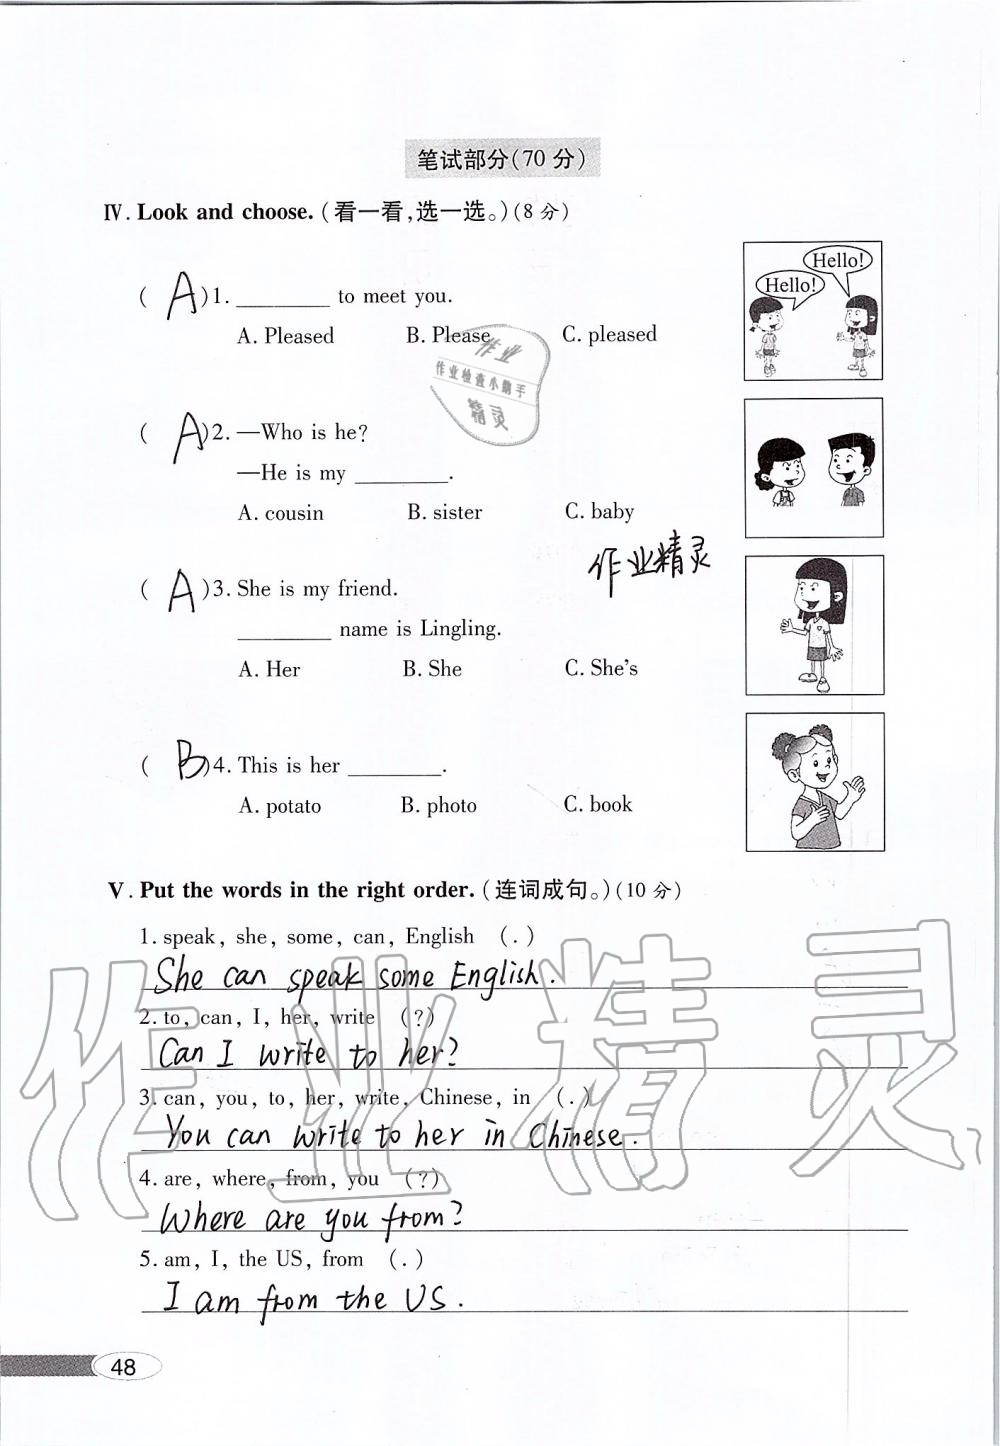 笔试部分(70 分)
Ⅳ. Look and choose. (看一看,选一选。)(8 分)
Hello!
Hello!
( A )1. ________ to meet you.
A. Pleased B. Please C. pleased
作业
作业检查小助手
精灵
( A )2. —Who is he?
—He is my ________.
A. cousin B. sister C. baby
作业精灵
( A )3. She is my friend.
________ name is Lingling.
A. Her B. She C. She's
( B )4. This is her ________.
A. potato B. photo C. book
Ⅴ. Put the words in the right order. (连词成句。)(10 分)
1. speak, she, some, can, English (.)
She can speak some English.
2. to, can, I, her, write (?)
Can I write to her?
3. can, you, to, her, write, Chinese, in (.)
You can write to her in Chinese.
4. are, where, from, you (?)
Where are you from?
5. am, I, the US, from (.)
I am from the US.
作业精灵
48